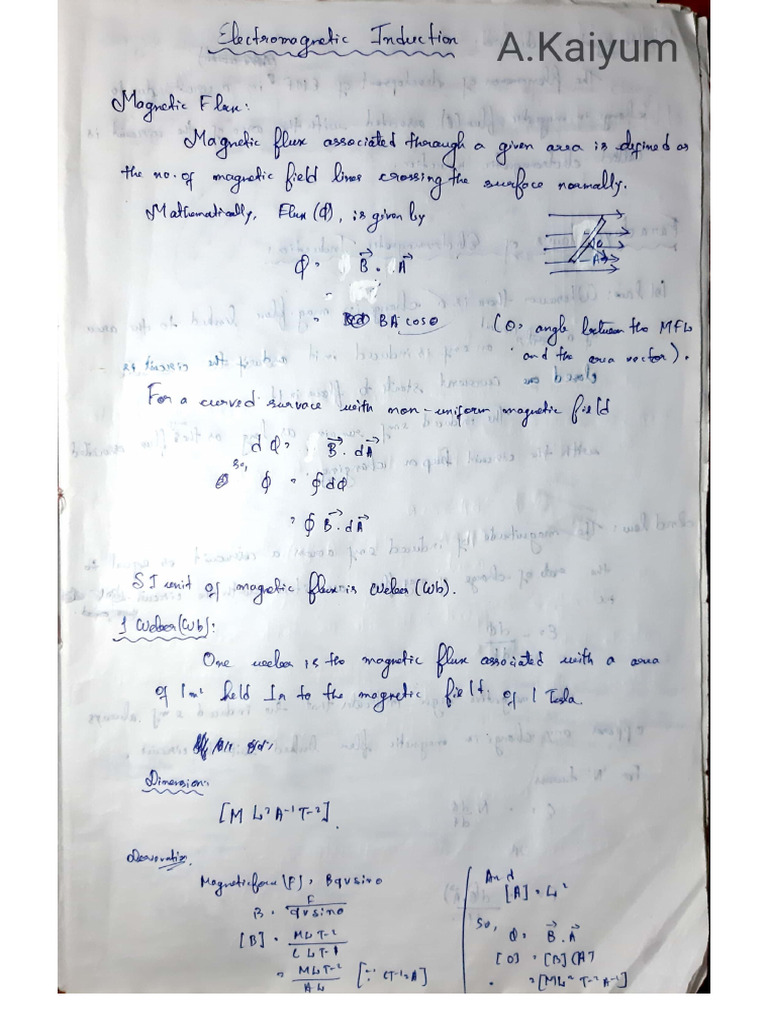 Electromagnetic Induction
A.Kaiyum
Magnetic Flux:
Magnetic flux associated through a given area is defined as
the no. of magnetic field lines crossing the surface normally.
Mathematically, Flux (Φ), is given by
Φ = B⃗ . A⃗
= BA cosθ (θ = angle between the MFL
and the area vector).
For a curved survace with non-uniform magnetic field
dΦ = B⃗ . dA⃗
so, Φ = ∮dΦ
= ∮ B⃗ . dA⃗
SI unit of magnetic flux is Weber (Wb).
1 Weber (Wb):
One weber is the magnetic flux associated with a area
of 1m² held Ir to the magnetic field of 1 Tesla.
Dimension:
[M L² A⁻¹ T⁻²].
Derivation
Magnetic force (F) = Bqvsinθ
B = F / qvsinθ
[B] = MLT⁻² / CLT⁻¹
= MLT⁻² / AL [∵ CT⁻¹ = A]
And
[A] = L²
So,
Φ = B⃗ . A⃗
[Φ] = [B] [A]
= [ML² T⁻² A⁻¹]